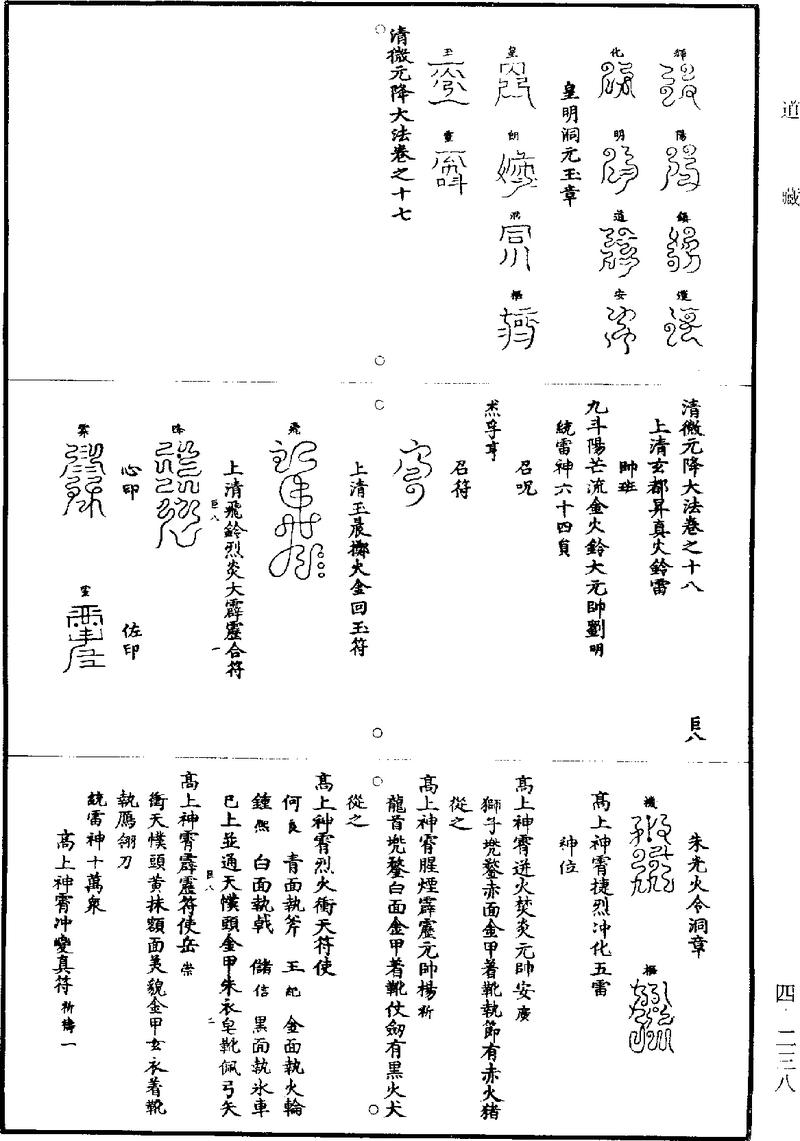 道藏
四·二三八
陽 鎮
化 明 道 安
皇明洞元玉章
皇 朗 樞
玉
清微元降大法卷之十七
清微元降大法卷之十八
巨八
上清玄都昇真火鈴雷
帥班
九斗陽芒流金火鈴大元帥劉明
統雷神六十四員
召呪
孚亨
召符
上清玉晨擲火金回玉符
飛
上清飛鈴烈炎大霹靂合符
巨八 一
降
心印
佐印
朱光火令洞章
樞
高上神霄捷烈冲化五雷
神位
高上神霄迸火焚炎元帥安廣
獅子兠鍪赤面金甲着靴執節有赤火猪
從之
高上神霄腥煙霹靂元帥楊祈
龍首兠鍪白面金甲着靴仗劒有黑火犬
從之
高上神霄烈火衝天符使
何良 青面執斧 王紀 金面執火輪
鍾熙 白面執戟 儲信 黑面執氷車
已上並通天幞頭金甲朱衣皂靴佩弓矢
巨八 二
高上神霄霹靂符使岳崇
衝天幞頭黄抹額面美貌金甲玄衣着靴
執鴈翎刀
統雷神十萬衆
高上神霄冲變真符祈禱一